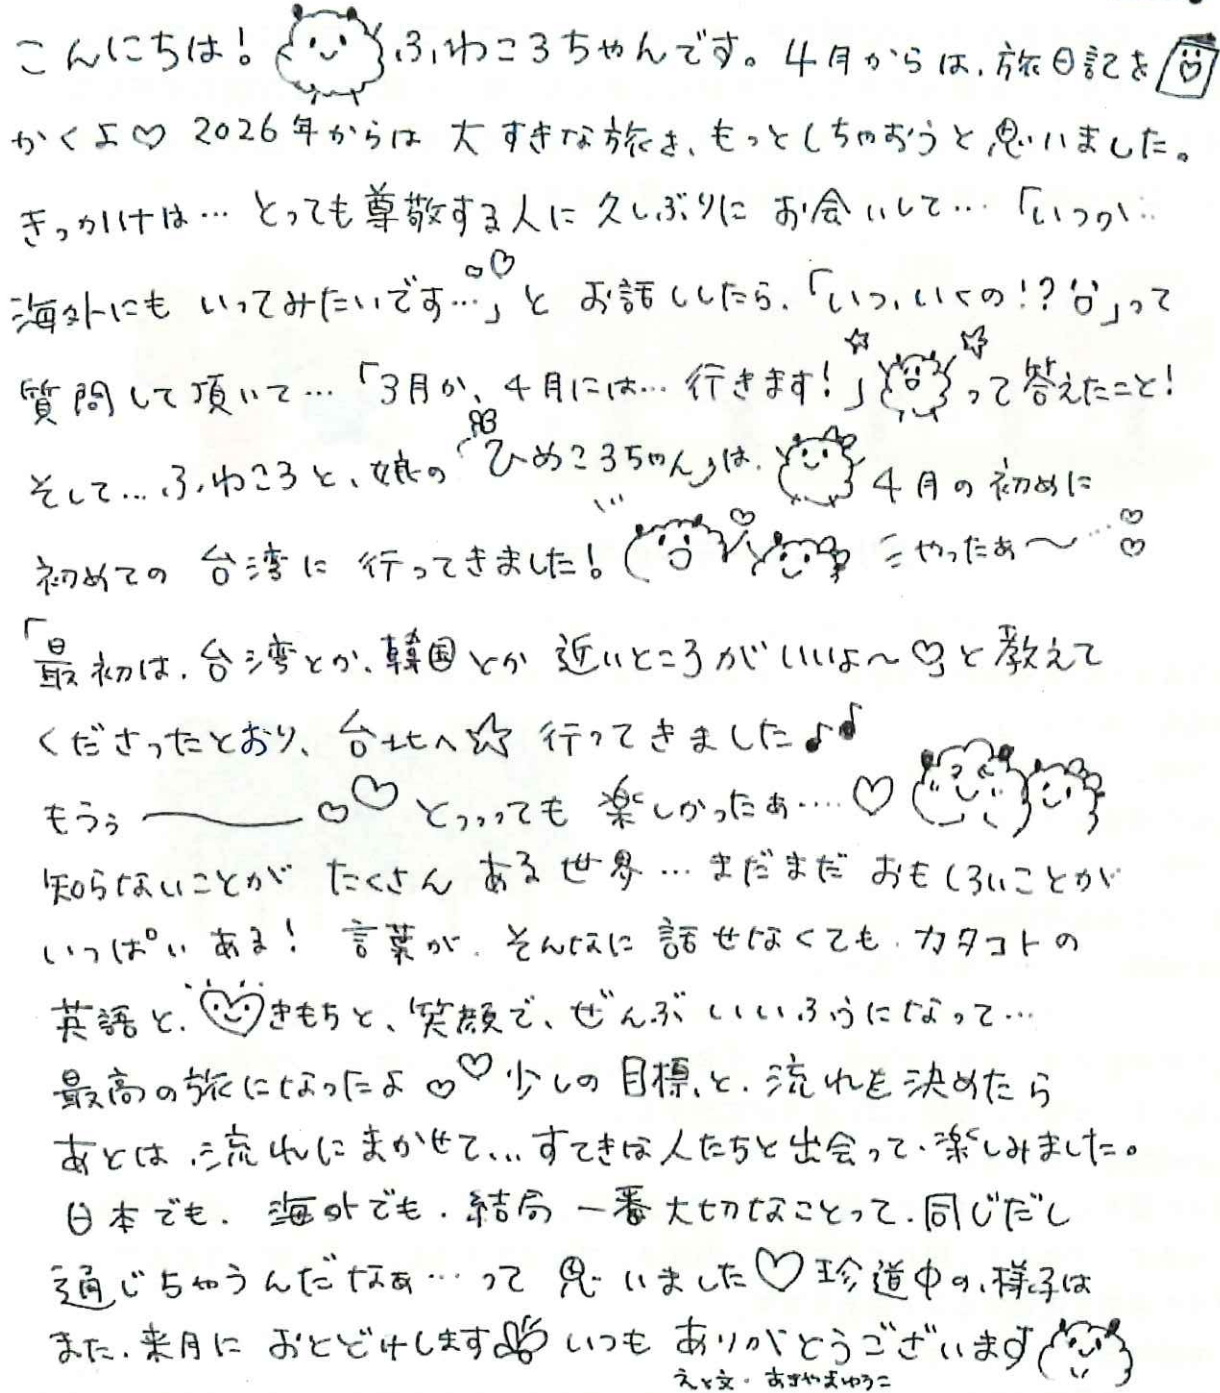 こんにちは! ふわころちゃんです。4月からは、旅日記を
かくよ♡ 2026年からは 大すきな旅を、もっとしちゃおうと思いました。
きっかけは… とっても尊敬する人に 久しぶりに お会いして…「いつか…
海外にも いってみたいです…」と お話ししたら、「いつ、いくの!?」って
質問して頂いて…「3月か、4月には… 行きます!」って答えたこと!
そして… ふわころと、娘の「ひめころちゃん」は、4月の初めに
初めての 台湾に 行ってきました! やったぁ〜…♡♡
「最初は、台湾とか、韓国とか 近いところがいいよ〜♡」と教えて
くださったとおり、台北へ☆ 行ってきました♪♪
もうぅ────♡♡ とっっっても 楽しかったぁ……♡
知らないことが たくさん ある世界… まだまだ おもしろいことが
いっぱい ある! 言葉が、そんなに 話せなくても、カタコトの
英語と、♡きもちと、笑顔で、ぜんぶ いいふうになって…
最高の旅になったよ♡♡ 少しの目標、と、流れを決めたら
あとは、流れにまかせて… すてきな人たちと出会って、楽しみました。
日本でも、海外でも、結局 一番大切なことって、同じだし
通じちゃうんだなぁ… って 思いました♡ 珍道中の、様子は
また、来月に おとどけします いつも ありがとうございます
えと文・あきやまゆうこ